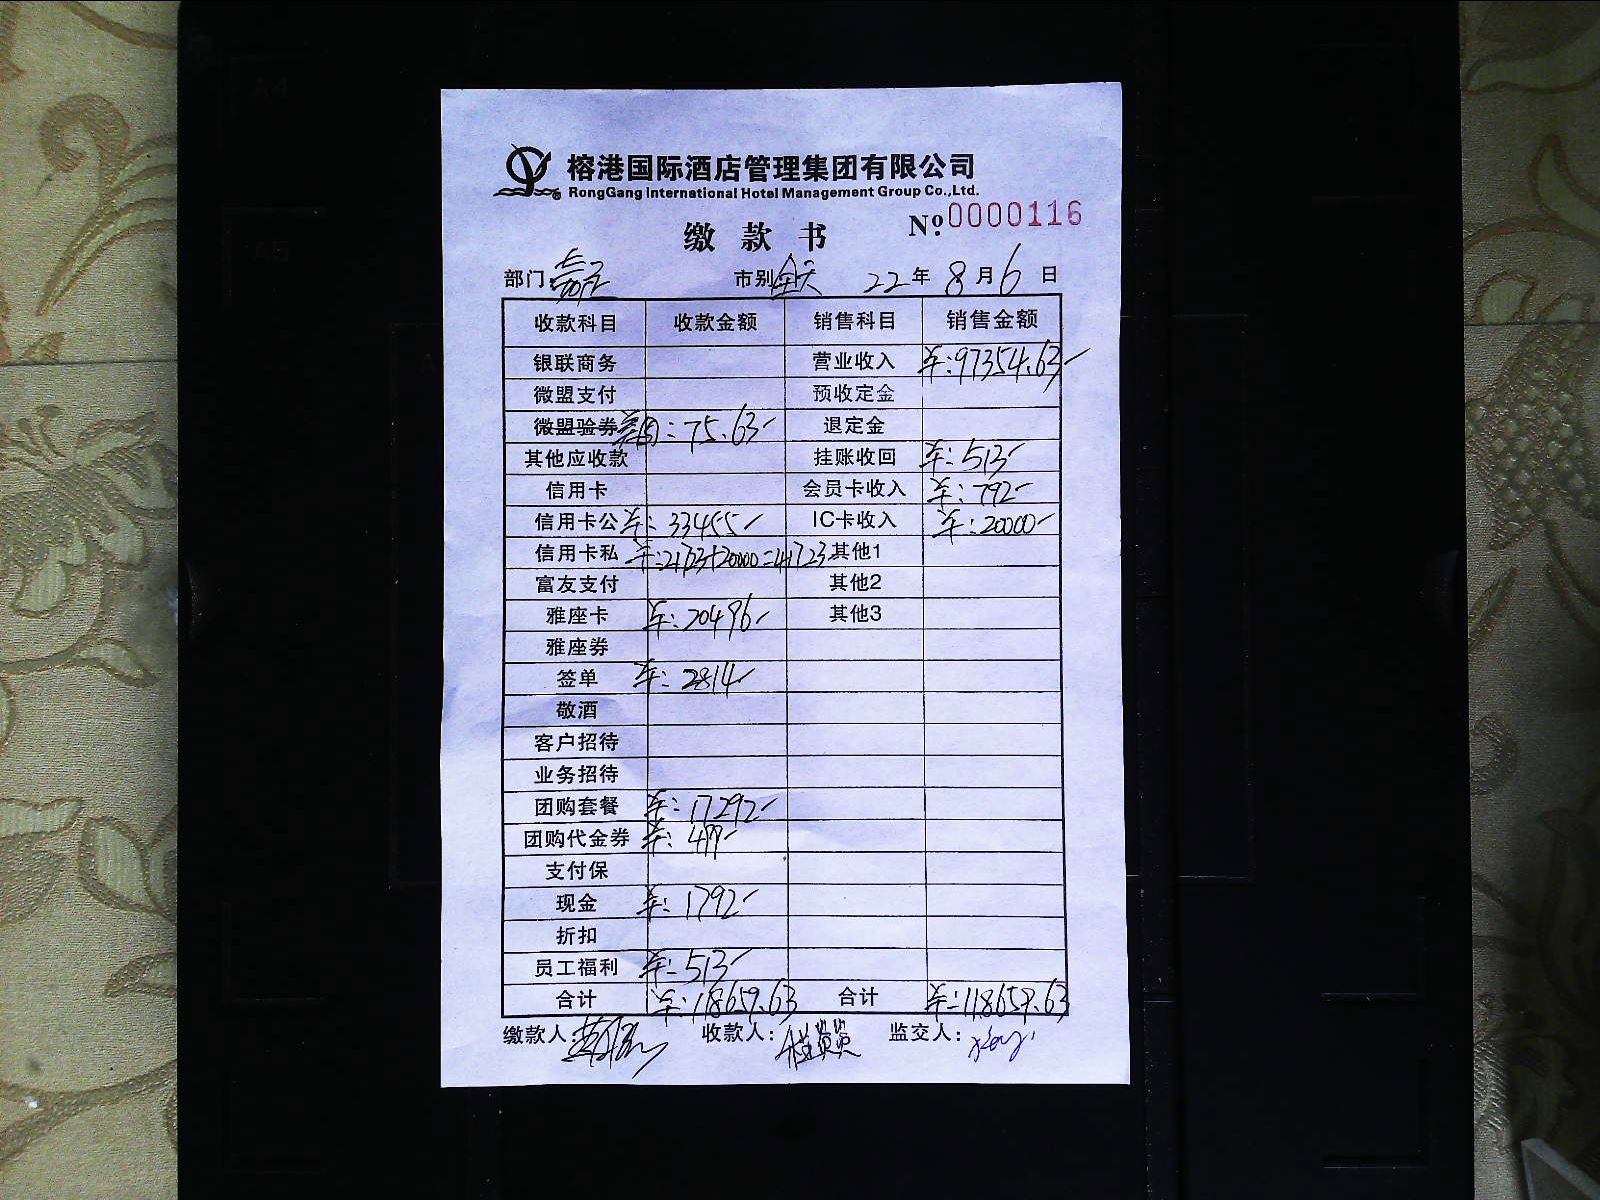 榕港国际酒店管理集团有限公司
RongGang International Hotel Management Group Co.,Ltd.
缴款书 Nº:0000116
部门: 市别 全天 22年8月6日
收款科目 收款金额 销售科目 销售金额
银联商务 营业收入 ¥:97354.63
微盟支付 预收定金
微盟验券 美团:75.63 退定金
其他应收款 挂账收回 ¥:513
信用卡 会员卡收入 ¥:792
信用卡公 ¥:33455 IC卡收入 ¥:20000
信用卡私 ¥:21723+20000=41723 其他1
富友支付 其他2
雅座卡 ¥:20496 其他3
雅座券
签单 ¥:2814
敬酒
客户招待
业务招待
团购套餐 ¥:17292
团购代金券 ¥:499
支付保
现金 ¥:1792
折扣
员工福利 ¥:513
合计 ¥:118659.63 合计 ¥:118659.63
缴款人: 收款人: 监交人: